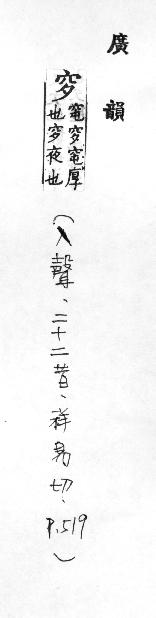 廣韻
穸
窀穸窀厚
也穸夜也
(入聲、二十二昔、祥易切、P.519)